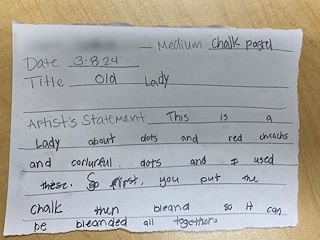 — Medium chalk pastel
Date 3.8.24
Title Old Lady
Artist's Statement This is a
Lady about dots and red cheachs
and corlurful dots and I used
these. So first, you put the
Chalk then bleand so it can
be bleanded all togethers